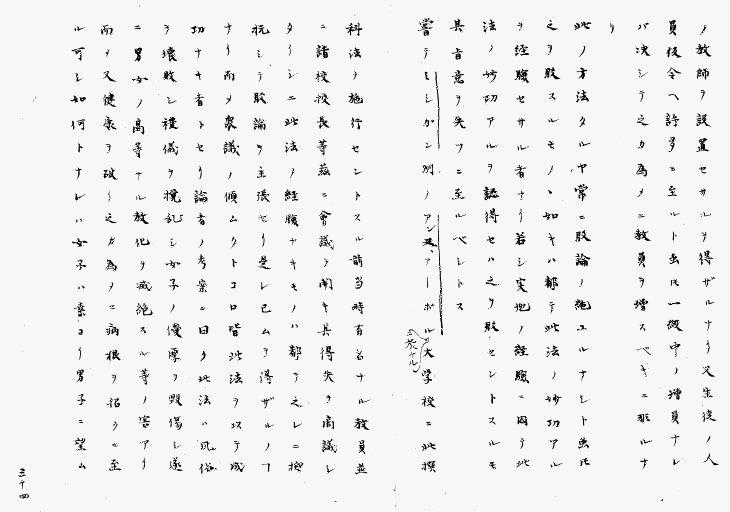 ノ教師ヲ設置セサルヲ得ザルナリ又生徒ノ人
員仮令ヘ許多ニ至ルト虽𪜈一級中ノ増員ナレ
バ决シテ之カ為メニ教員ヲ増スベキニ非ルナ
リ
此ノ方法タルヤ常ニ駁論ノ絶ユルナシト虽𪜈
之ヲ駁スルモノヽ如キハ都テ此法ノ妙功アル
ヲ経験セサル者ナリ若シ実地ノ経験ニ因テ此
法ノ妙功アルヲ認得セハ之ヲ駁セントスルモ
其旨意ヲ失フニ至ルベシトス
嘗テミシガン州ノアンアーボル大学校ニ此撰
ニ於ケル
科法ヲ施行セントスル時当時有名ナル教員並
ニ諸校校長等茲ニ會議ヲ開キ其得失ヲ商議シ
タリシニ此法ノ経験ナキモノハ都テ之レニ抵
抗シテ駁論ヲ主張セリ是レ已ムヲ得ザルノヿ
ナリ而メ衆議ノ傾ムクトコロ皆此法ヲ以テ成
功ナキ者トセリ論者ノ考案ニ曰ク此法ハ風俗
ヲ壊敗シ禮儀ヲ撹乱シ女子ノ優厚ヲ毀傷シ遂
ニ男女ノ高等ナル教化ヲ滅絶スル等ノ害アリ
而メ又健康ヲ破リ之カ為メニ病根ヲ招クニ至
ル可シ如何トナレハ女子ハ素ヨリ男子ニ望ム
三十四